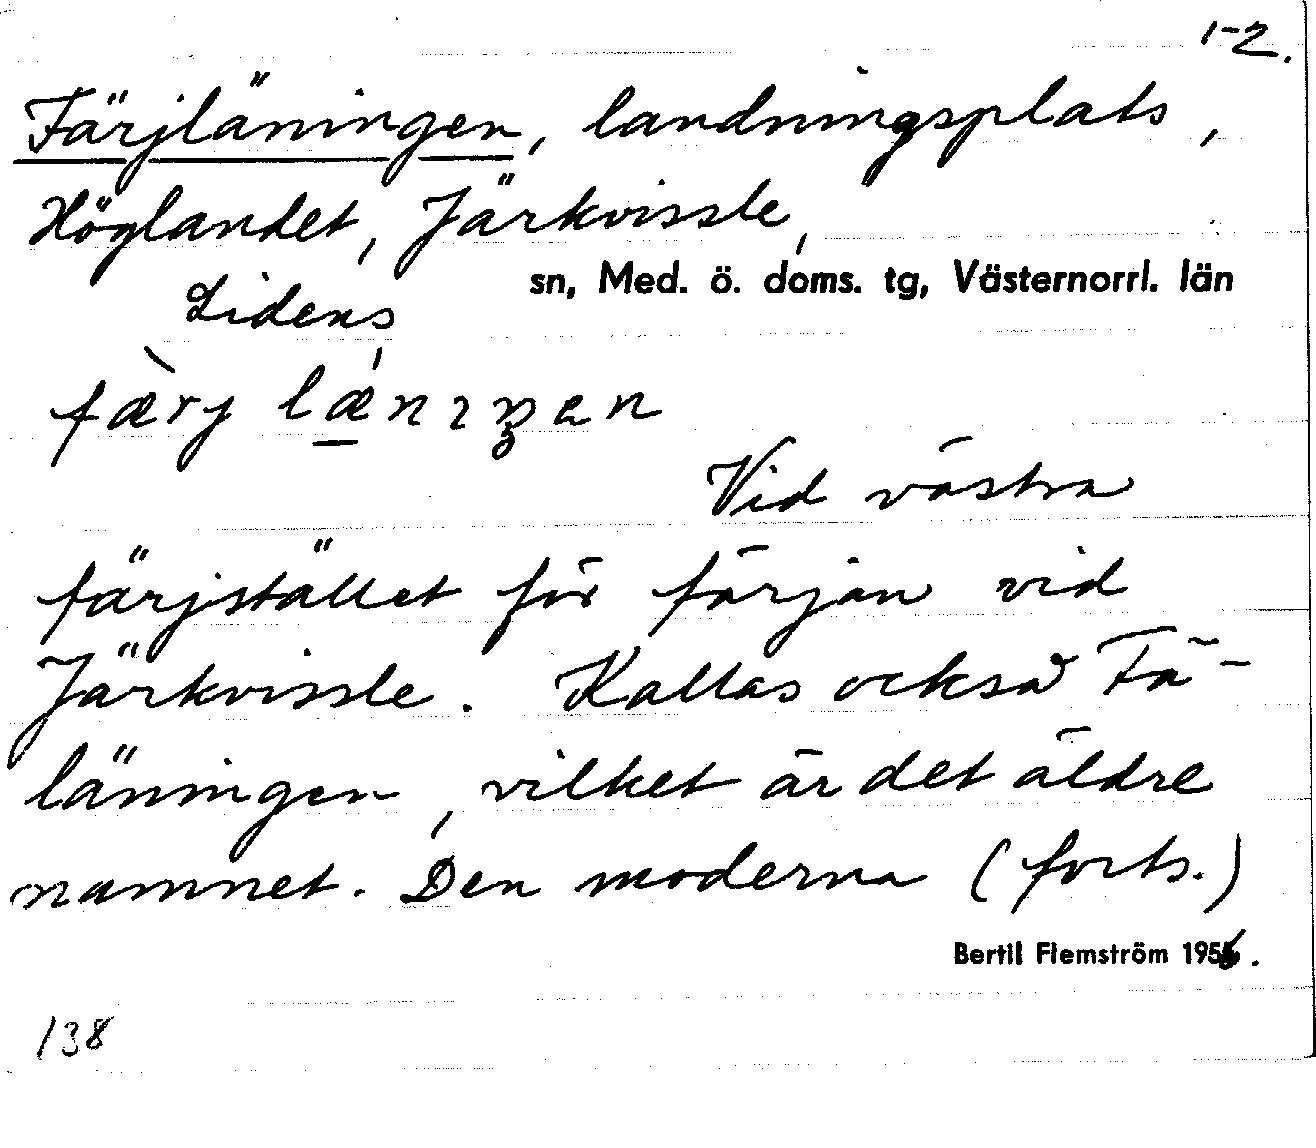 1-2.
Färjläningen, landningsplats,
Höglandet, Järkvissle,
Lidens sn, Med. ö. doms. tg, Västernorrl. län
Vid västra
färjstället för färjan vid
Järkvissle. Kallas också Fä-
läningen, vilket är det äldre
namnet. Den moderna (forts.)
Bertil Flemström 1956.
138